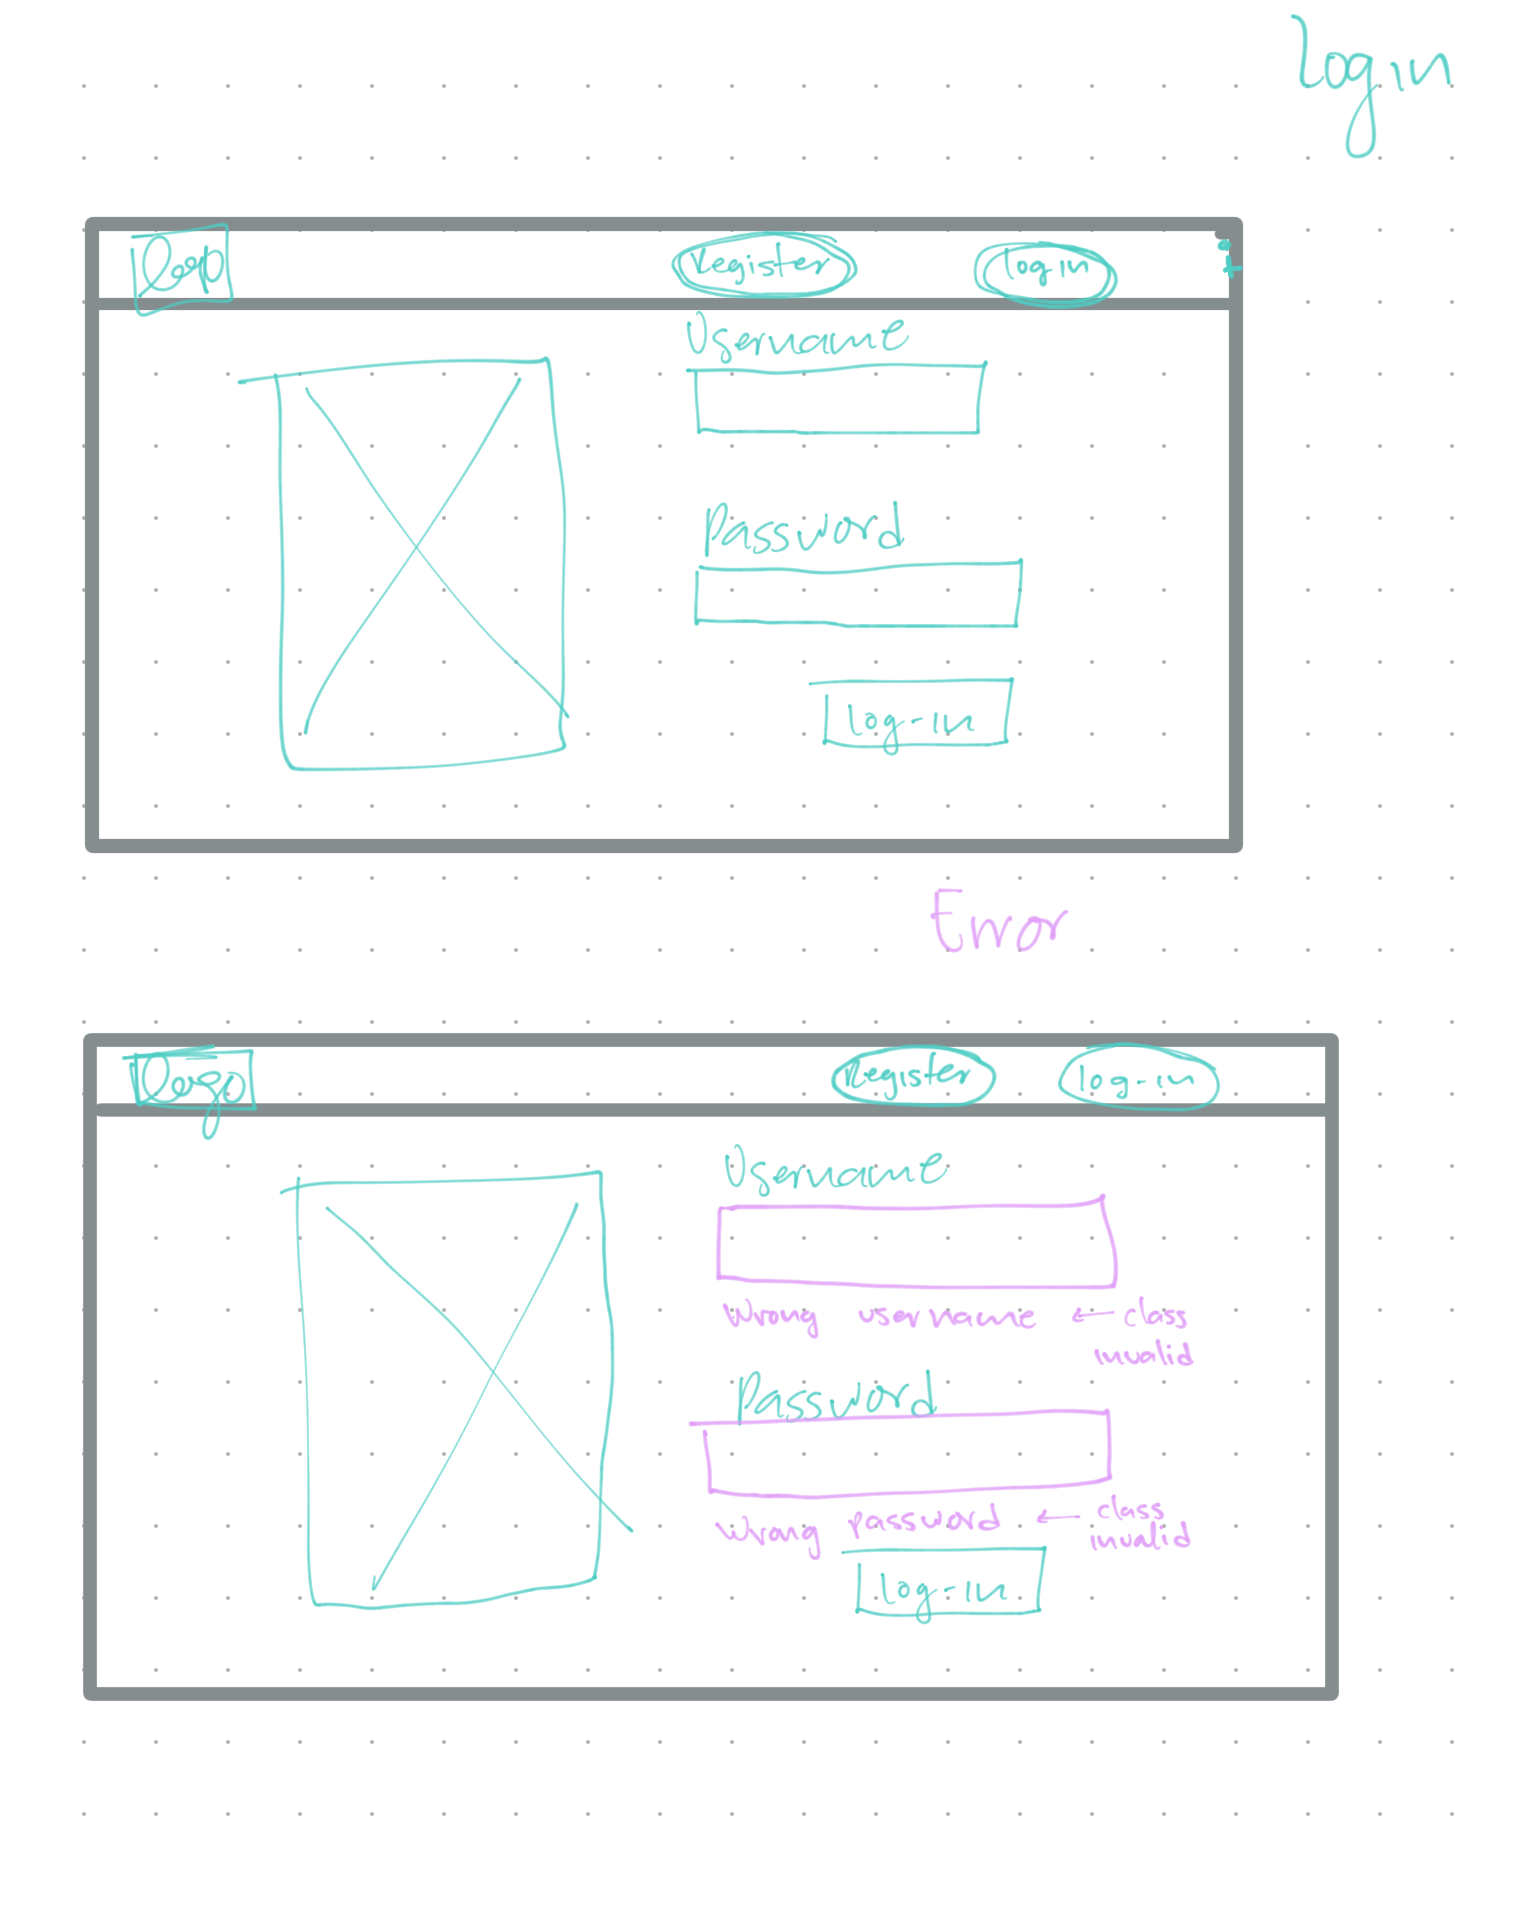 login
Register
login
Username
Password
log-in
Error
Logo
Register
log-in
Username
Wrong username ← class
invalid
Password
Wrong password ← class
invalid
log-in